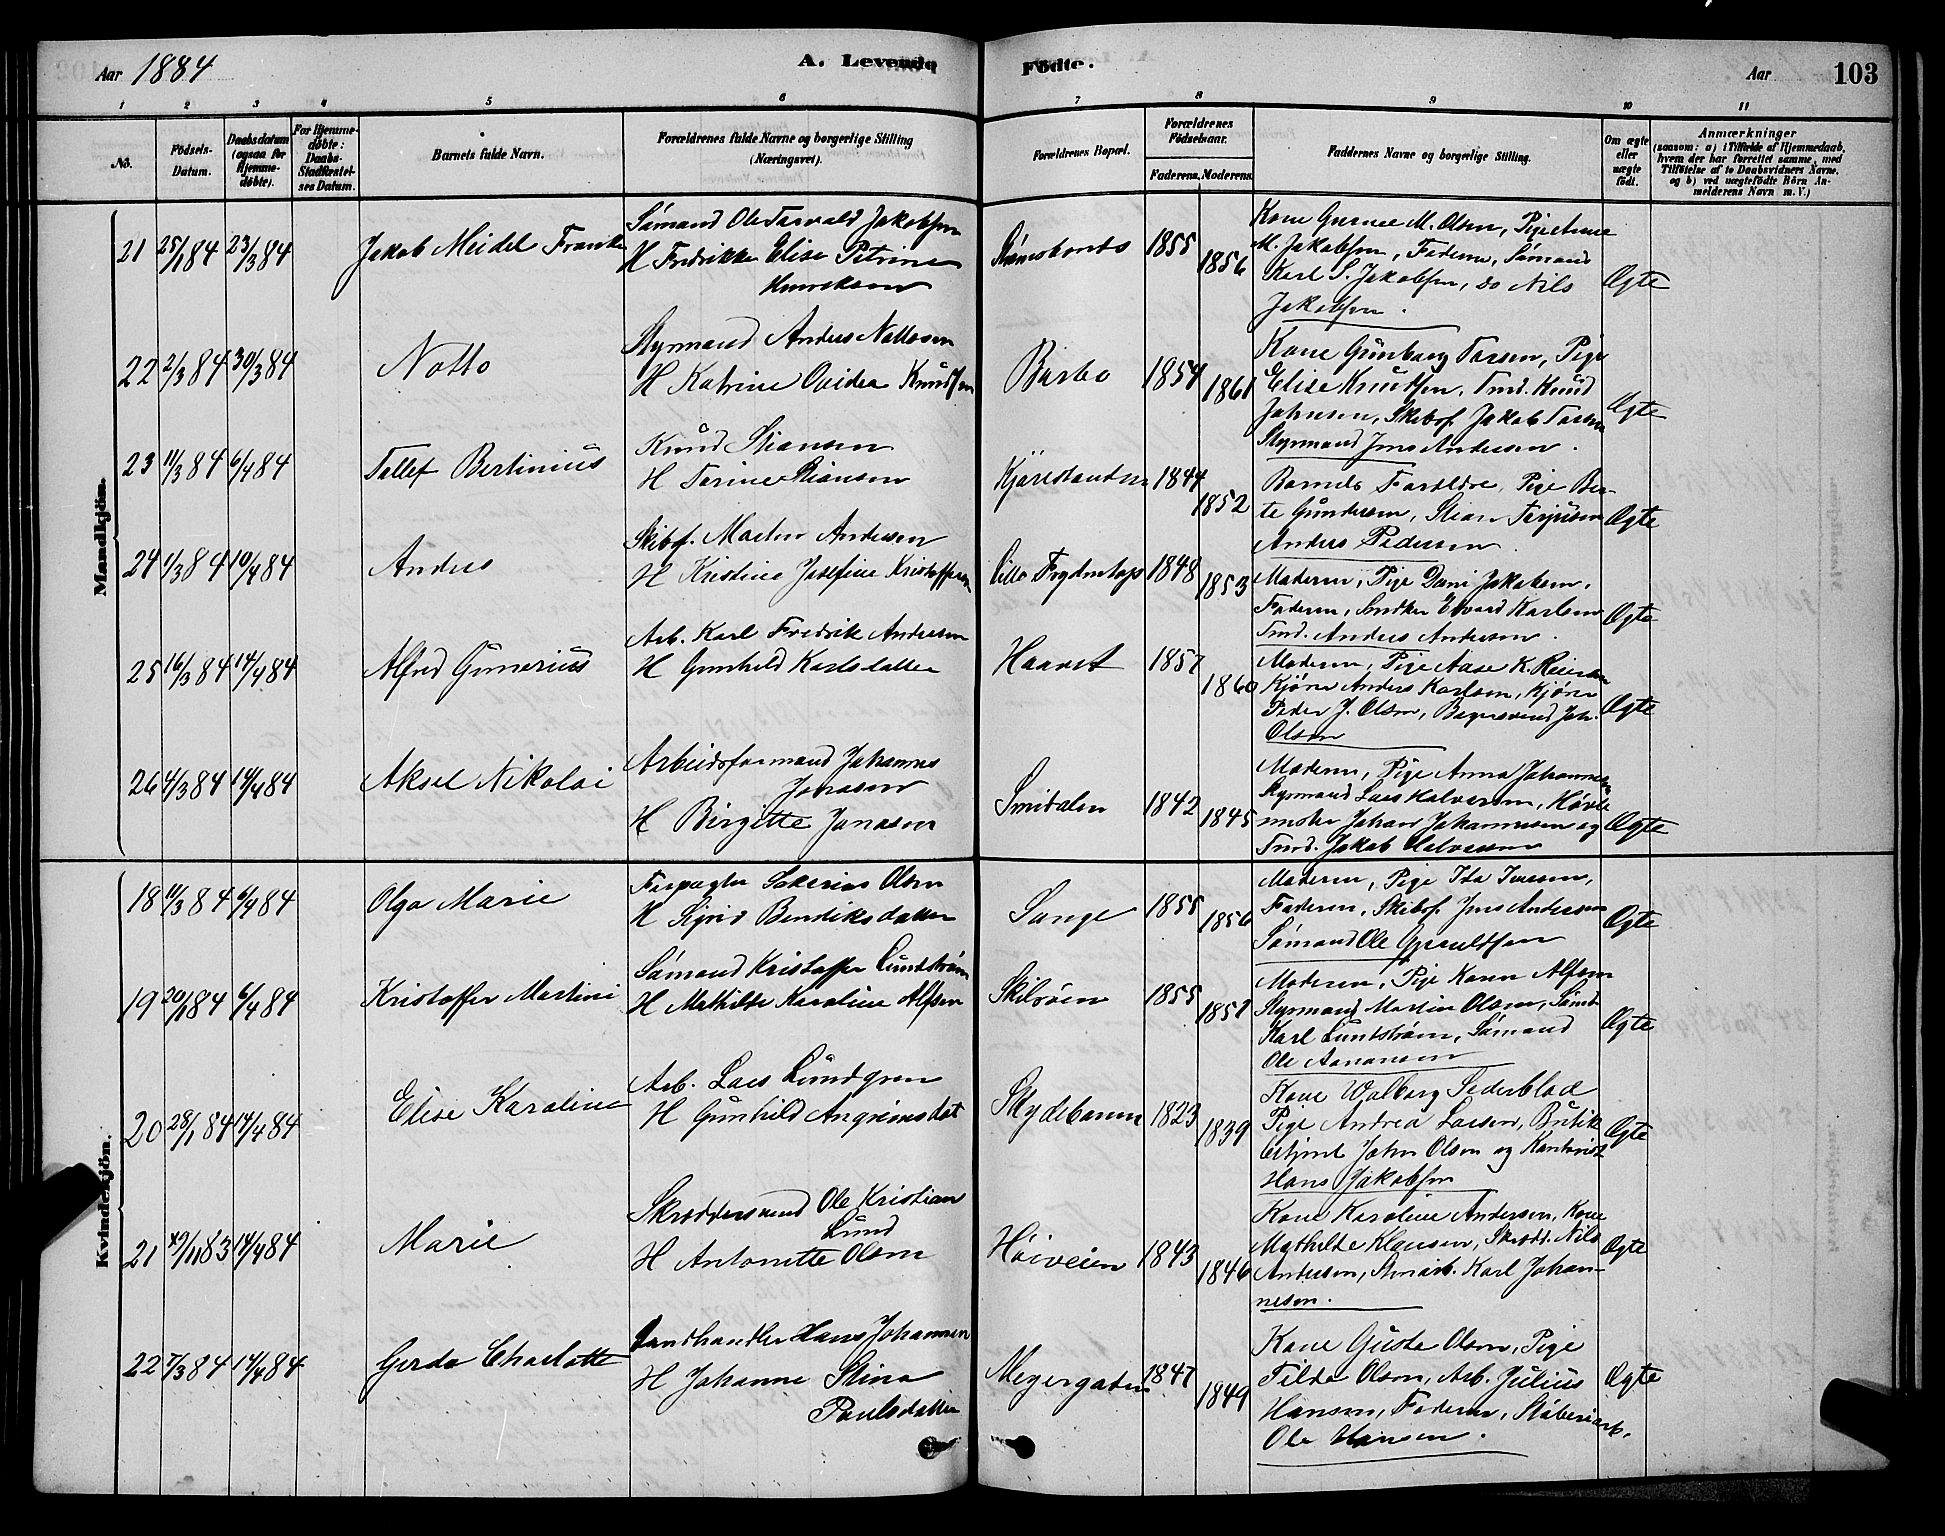 Aar 1884
A. Levende
Födte.
Aar
103
1 2 3 4 5 6 7 8 9 10 11
No.
Födsels-Datum.
Daabsdatum (ogsaa for Hjemmedøbte).
For Hjemmedøbte: Daabs-Stadfæstelses Datum.
Barnets fulde Navn.
Forældrenes fulde Navne og borgerlige Stilling (Næringsvei).
Forældrenes Bopæl.
Forældrenes Fødselsaar.
Faderens. Moderens.
Faddernes Navne og borgerlige Stilling.
Om ægte eller uægte födt.
Anmærkninger (saasom: a) i Tilfælde af Hjemmedaab, hvem der har forrettet samme, med Tilföielse af to Daabsvidners Navne, og b) ved uægtefödte Börn Anmelderens Navn m. V.)
Mandkjön.
21 25/1 84 23/3 84 Jakob Meidel
Sömand Ole Tarvald Jakobsen
H Fredrikke Elise Petrine
Henriksen
1855 1856
Kone Gurnee M. Olsen, Pige Anne
M. Jakobsen, Faderen, Sömand
Karl S. Jakobsen, do Nils
Jakobsen.
Ægte
22 2/3 84 30/3 84 Notto
Styrmand Anders Nottosen
H Katrine Ovidea Knudsen
Barbo 1854 1861
Kone Gunborg Tarsen, Pige
Elise Knudsen, Tmd. Knud
Johnsen, Skibsf. Jakob Tarsen
Styrmand Jens Andersen.
Ægte
23 11/3 84 6/4 84 Tallef Bertinius
Knud Stiansen
H Tarine Stiansen
1844 1852
Barnets Forældre, Pige Ber-
te Gundersen, Stian Terjusen
Anders Pedersen.
Ægte
24 1/3 84 10/4 84 Anders
Skibsf. Martin Andersen
H Kristine Josefine Kristoffersen
Lille Frydentop 1848 1853
Moderen, Pige Dani Jakobsen,
Faderen, Snedker Edvard Karlsen
Tmd. Anders Andersen.
Ægte
25 16/3 84 14/4 84 Alfred Gunerius
Arb. Karl Fredrik Andersen
H Gunhild Karlsdatter
Haavet 1857 1860
Moderen, Pige Aase K. Reiersen
Kjöre Anders Karlsen, Kjöre
Peder J. Olsen, Bagersvend Joh.
Olsen
Ægte
26 4/3 84 14/4 84 Aksel Nikolai
Arbeidsformand Johannes
Jonasen
H Birgitte Jonasen
Smidalen 1842 1845
Moderen, Pige Anna Johannesen
Styrmand Lars Halvorsen, Høvle-
mester Johan Johannesen og
Tmd. Jakob Halvorsen
Ægte
Kvindekjön.
18 11/3 84 6/4 84 Olga Marie
Forpagter Sakarias Olsen
H Sigrid Bendiksdatter
Sange 1855 1856
Moderen, Pige Ida Iversen,
Faderen, Skibsf. Jens Andersen
Sömand Ole Gjeruldsen
Ægte
19 20/1 84 6/4 84 Kristoffer Martini
Sömand Kristoffer Lundström
H Mathilde Karoline Alfsen
Skilsöen 1855 1857
Moderen, Pige Karen Alfsen
Styrmand Martin Olsen, Sömd
Karl Lundström, Sömand
Ole Aanonsen
Ægte
20 28/1 84 14/4 84 Elise Karoline
Arb. Lars Lundgren
H Gunhild Angrimsdat
Skydebanen 1823 1839
Kone Walborg Sederblad
Pige Andrea Larsen, Butik
betjent John Olsen og Kontorist
Hans Jakobsen
Ægte
21 29/11 83 14/4 84 Marie
Skræddersvend Ole Kristian
Lund
H Antonette Olsen
Höiveien 1843 1846
Kone Karoline Andersen, Kone
Mathilde Klausen, Skrædd. Nils
Andersen, Stenarb. Karl Johan-
nesen.
Ægte
22 7/3 84 14/4 84 Gerda Charlotte
Landhandler Hans Johannsen
H Johanne Stina
Paulsdatter
Meyergaden 1847 1849
Kone Gusta Olsen, Pige
Tilda Olsen, Arb. Julius
Hansen, Faderen, Støberiarb.
Ole Hansen.
Ægte